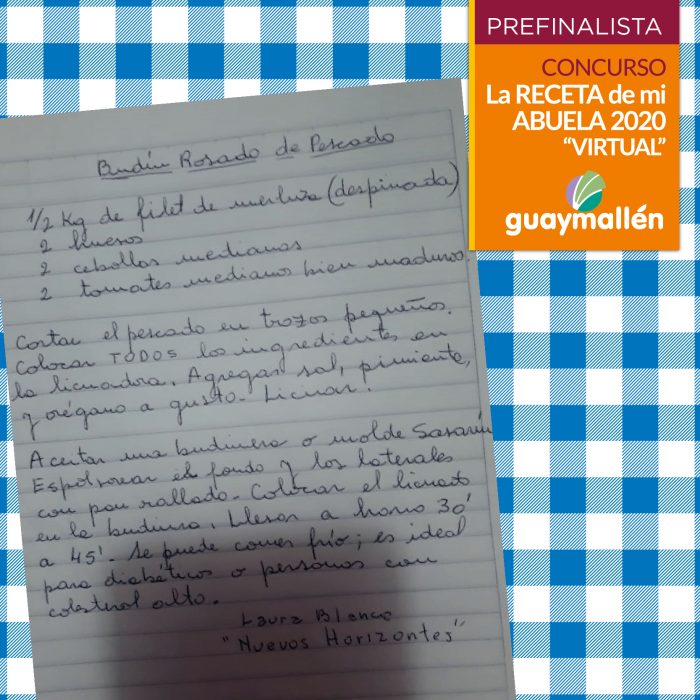 PREFINALISTA
CONCURSO
La RECETA de mi
ABUELA 2020
“VIRTUAL”
guaymallén
Budín Rosado de Pescado
1/2 Kg de filet de merluza (despinada)
2 huevos
2 cebollas medianas
2 tomates medianos bien maduros.
Cortar el pescado en trozos pequeños.
Colocar TODOS los ingredientes en
la licuadora. Agregar sal, pimienta,
y orégano a gusto. Licuar.
Aceitar una budinera o molde Savarín
Espolvorear el fondo y los laterales
con pan rallado. Colocar el licuado
en la budinera. Llevar a horno 30'
a 45'. Se puede comer frío; es ideal
para diabéticos o personas con
colesterol alto.
Laura Blanco
"Nuevos Horizontes"